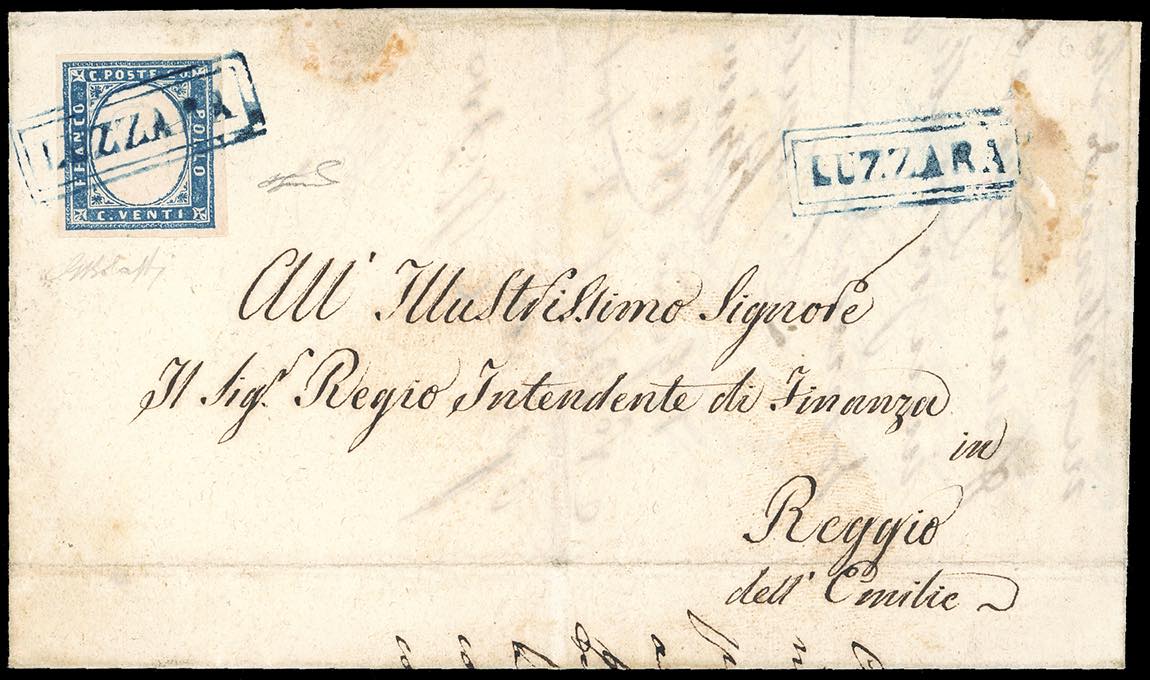 C. POSTE 20.
FRANCO
BOLLO
C. VENTI
LUZZARA
LUZZARA
All' Illustrissimo Signore
Il Sigr. Regio Intendente di Finanza
in
Reggio
dell' Emilie